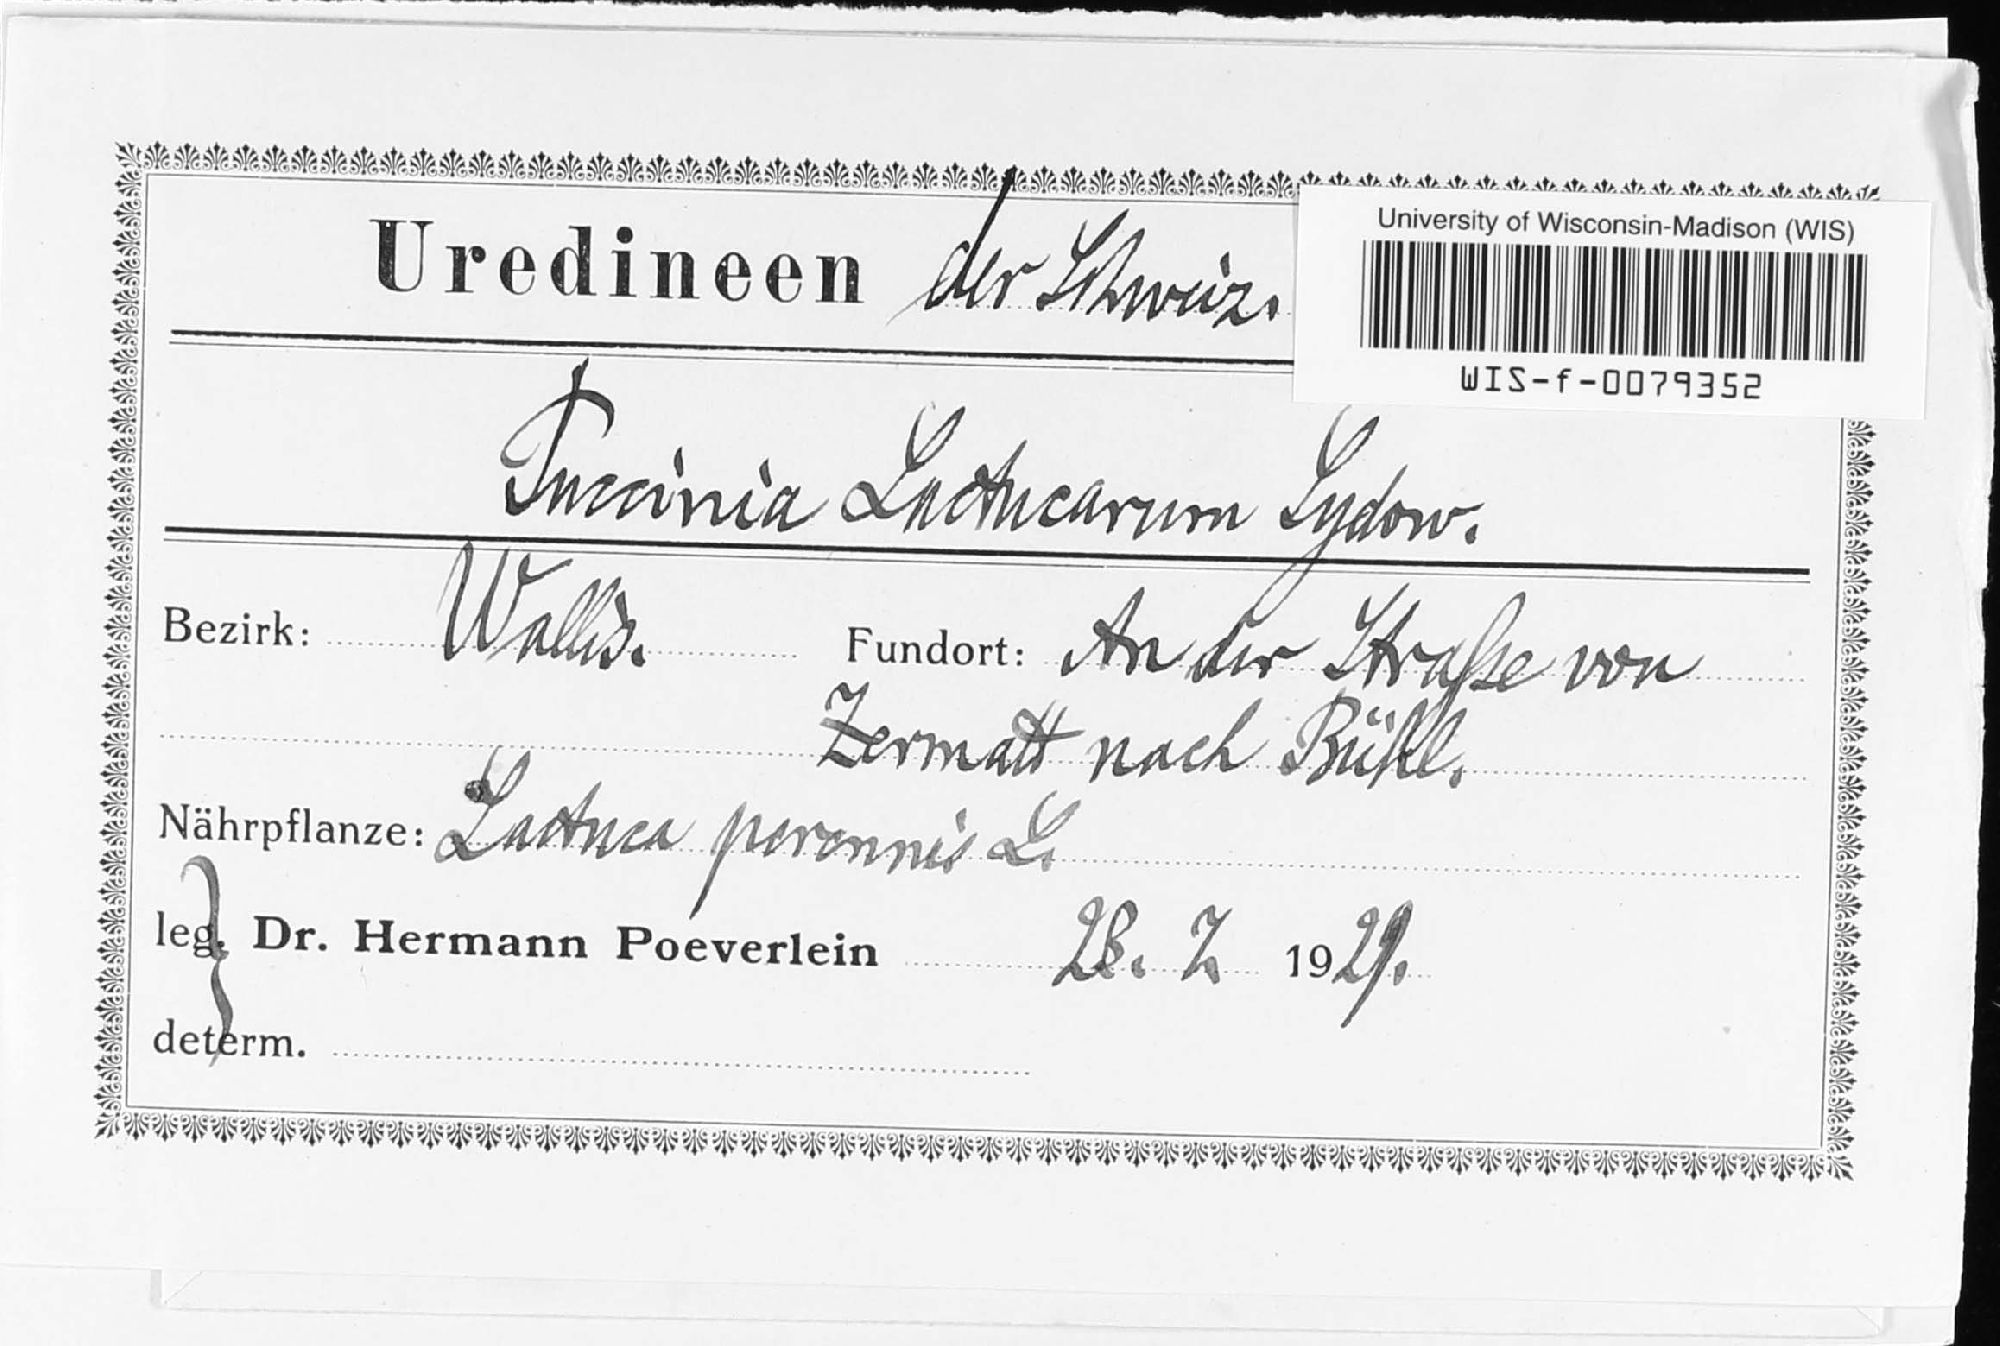 Uredineen der Schweiz.
University of Wisconsin-Madison (WIS)
WIS-f-0079352
Puccinia Lactucarum Sydow.
Bezirk: Wallis. Fundort: An der Straße von
Zermatt nach Bühl.
Nährpflanze: Lactuca perennis L.
leg. Dr. Hermann Poeverlein 28. 7. 1929.
determ.